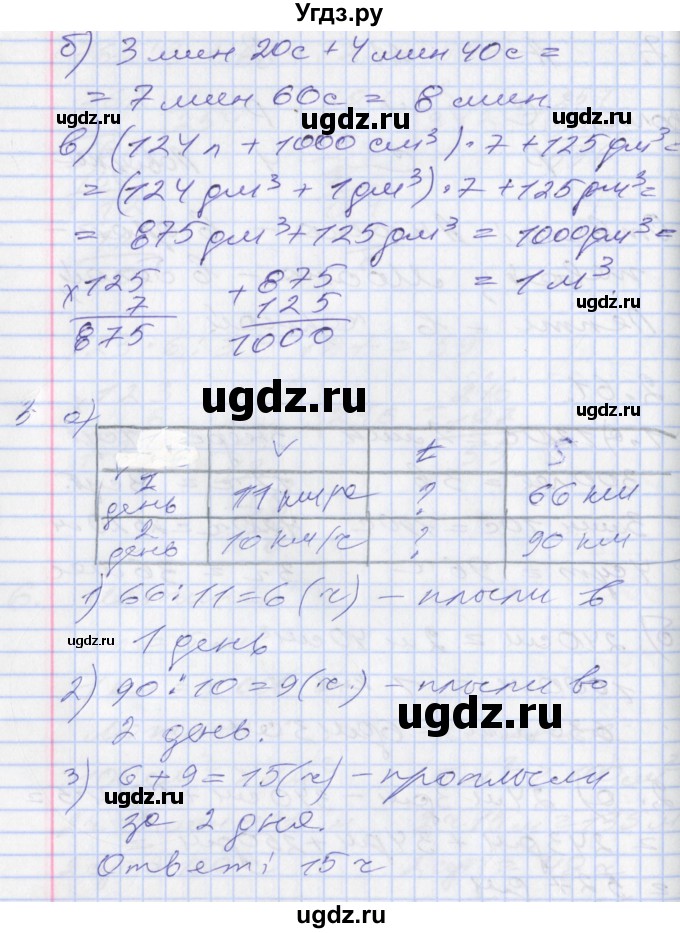 Угдз.ру
б) 3 мин 20с + 4 мин 40с =
= 7 мин 60с = 8 мин.
ugdz.ru
ugdz.ru
в) (124 л + 1000 см³) · 7 + 125 дм³ =
= (124 дм³ + 1 дм³) · 7 + 125 дм³ =
= 875 дм³ + 125 дм³ = 1000 дм³ =
= 1 м³
ugdz.ru
х 125
7
875
+ 875
125
1000
ugdz.ru
ugdz.ru
5 а)
V t S
1 день 11 км/ч ? 66 км
2 день 10 км/ч ? 90 км
1) 66 : 11 = 6 (ч) – плыли в
1 день
ugdz.ru
2) 90 : 10 = 9 (ч.) – плыли во
2 день.
ugdz.ru
3) 6 + 9 = 15 (ч) – проплыли
за 2 дня.
ugdz.ru
ugdz.ru
Ответ: 15 ч
ugdz.ru